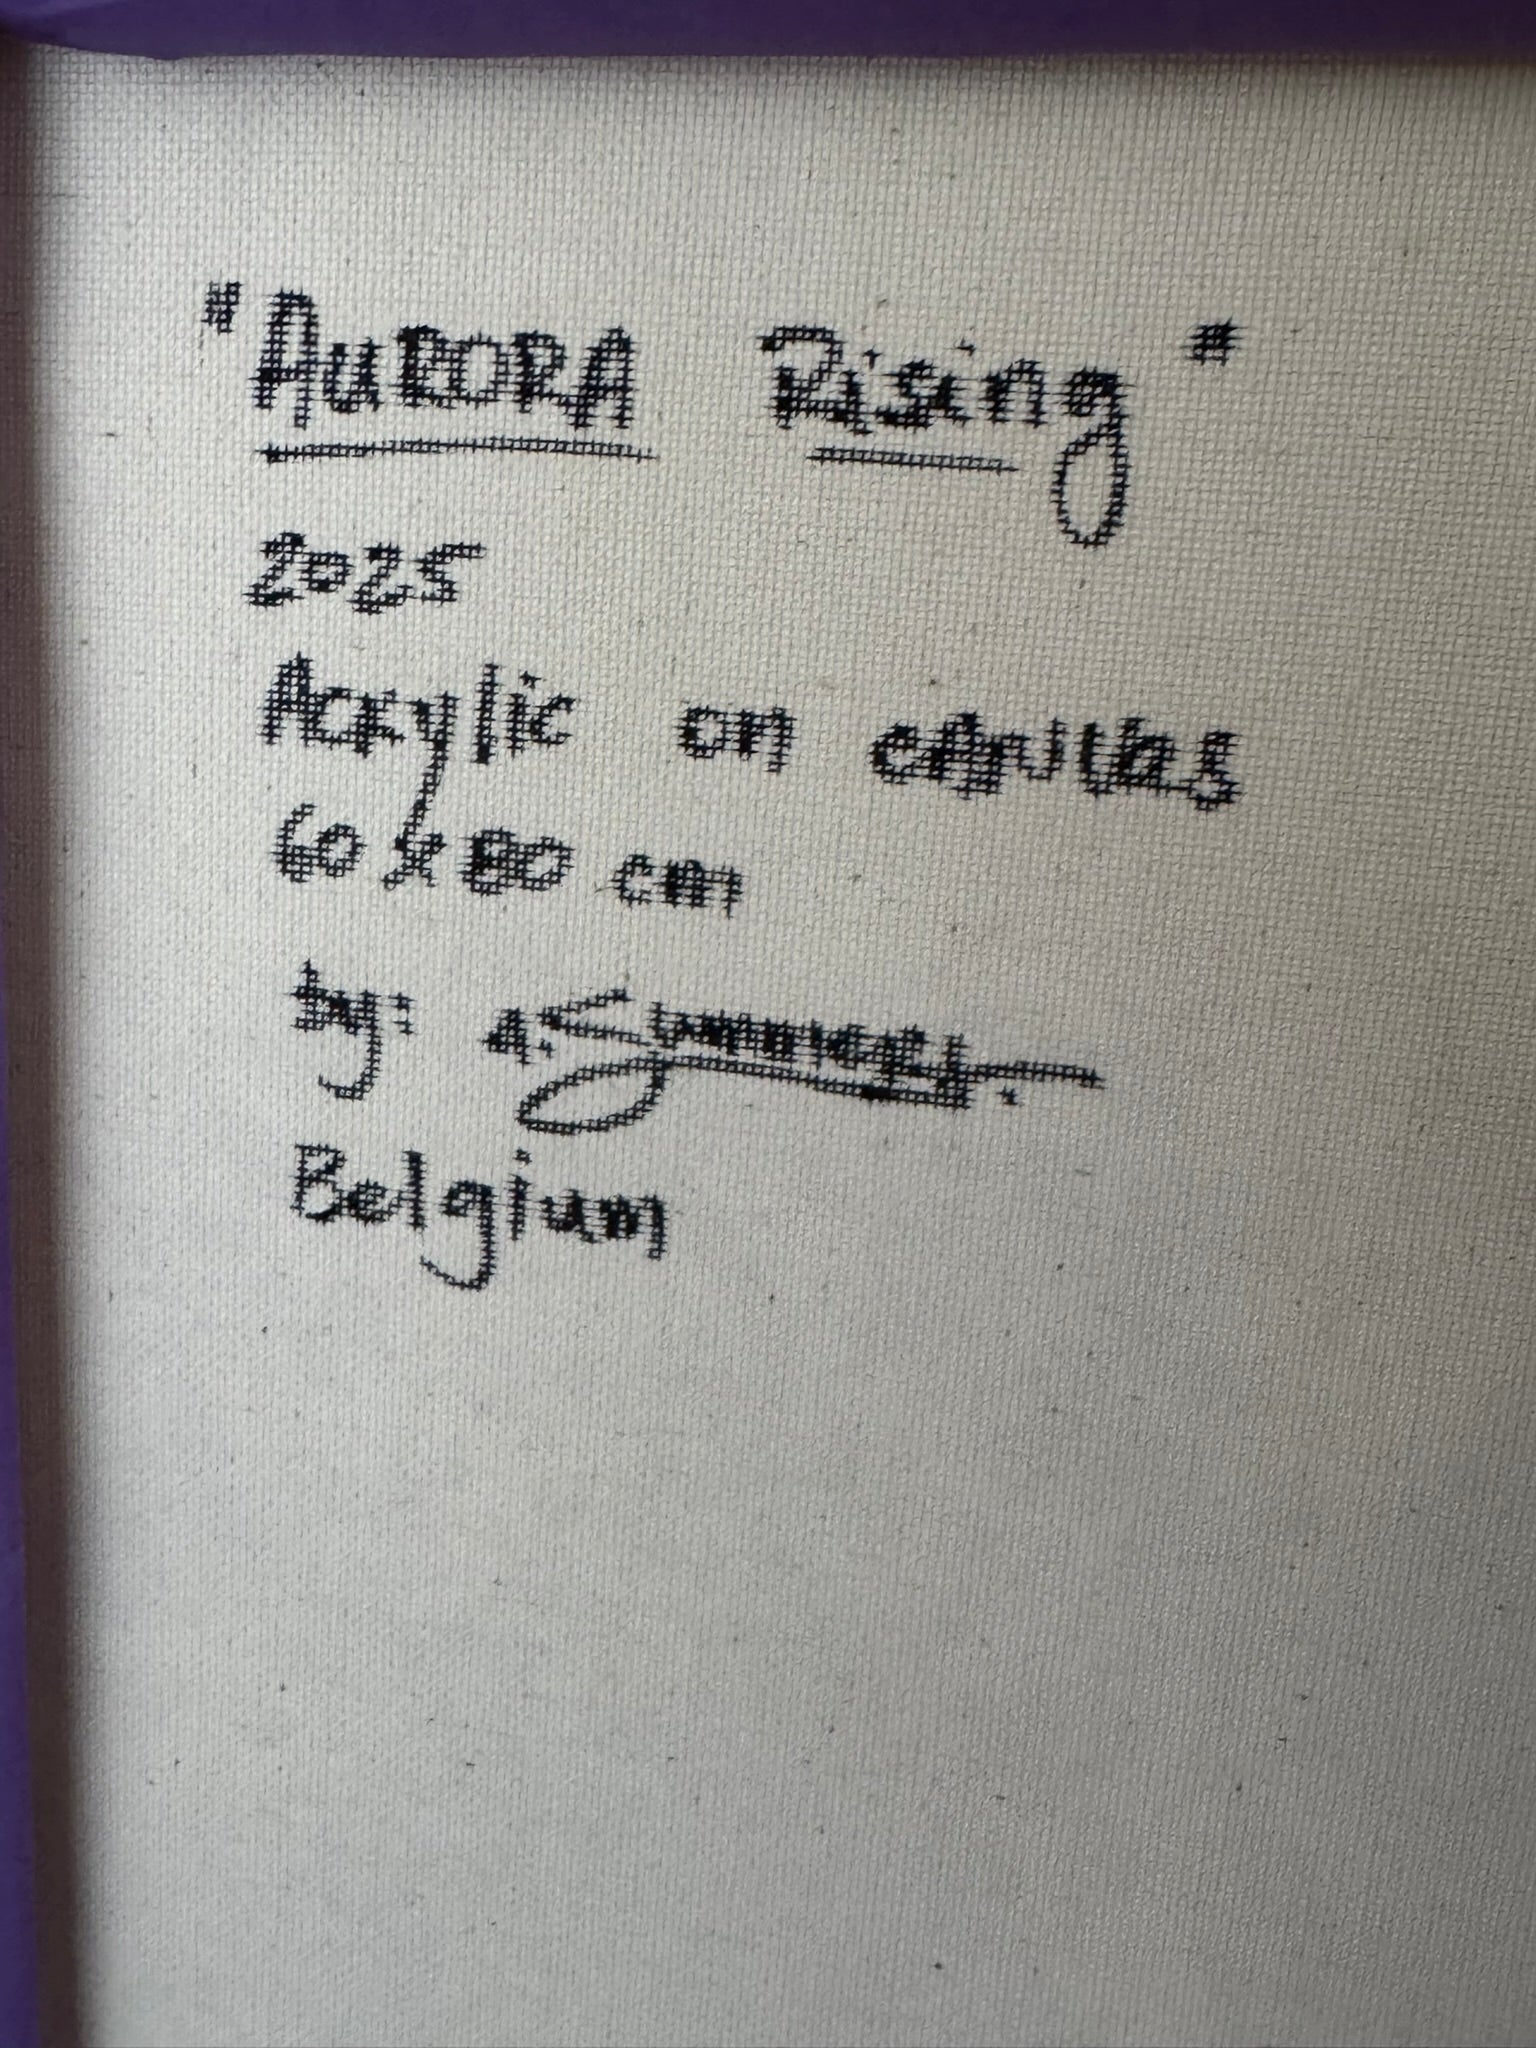 "AURORA Rising"
2025
Acrylic on canvas
60 x 80 cm
by:
Belgium